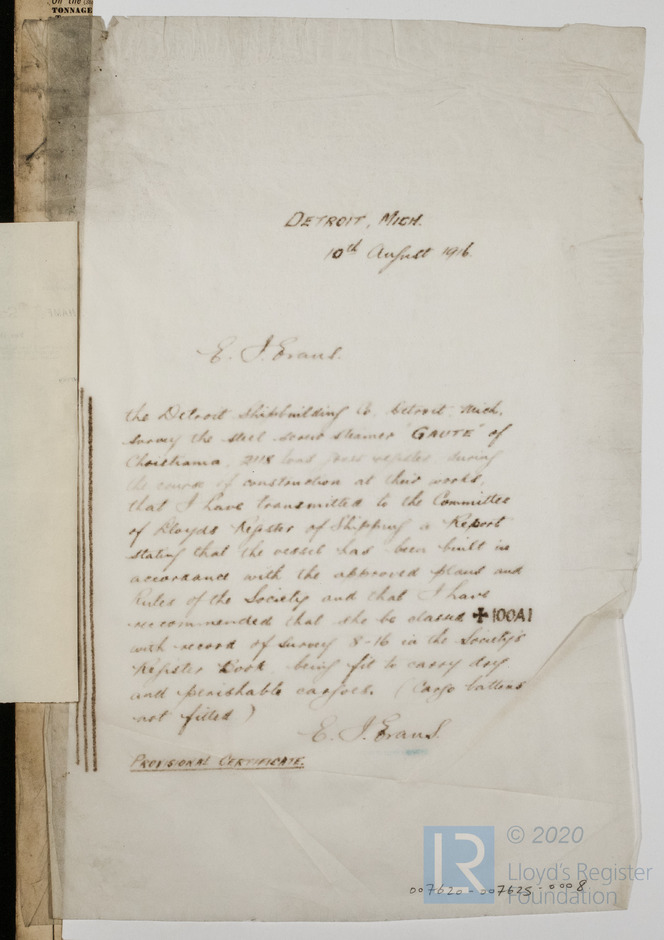 On the
TONNAGE
DETROIT, MICH.
10th August 1916.
E. J. Evans.
the Detroit Shipbuilding Co. Detroit Mich.
survey the steel screw steamer "GAUTE" of
Christiania, 2118 tons gross register during
the course of construction at their works,
that I have transmitted to the Committee
of Lloyds Register of Shipping a Report
stating that the vessel has been built in
accordance with the approved plans and
Rules of the Society and that I have
recommended that she be classed ✠100A1
with record of survey 8-16 in the Society's
Register Book, being fit to carry dry
and perishable cargoes. (Cargo battens
not fitted)
E. J. Evans.
PROVISIONAL CERTIFICATE.
LR
© 2020
Lloyd's Register
Foundation
007620-007625-0008